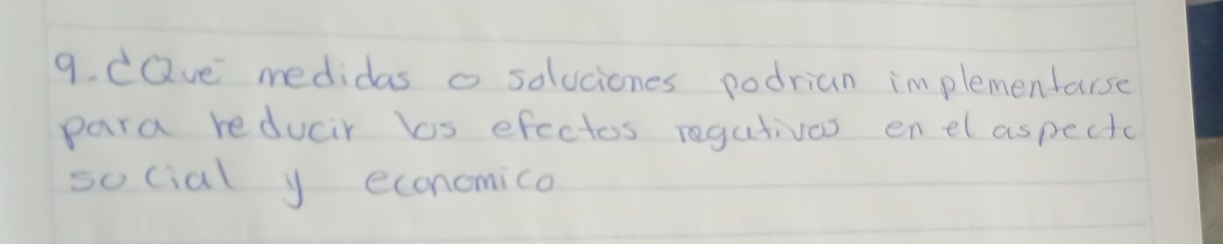 9. ¿Qué medidas o soluciones podrian implementarse
para reducir los efectos negativos en el aspecto
social y economico